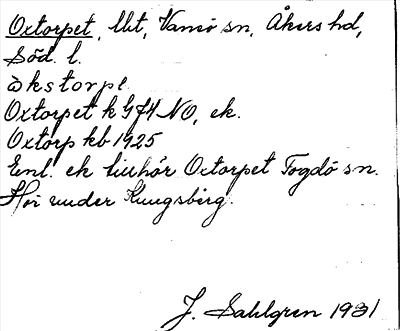 Oxtorpet, lht, Vansö sn, Åkers hd,
Söd. l.
Oxtorpet k GJ4 NO, ek.
Oxtorp kb 1925
Enl. ek tillhör Oxtorpet Fogdö sn.
Hör under Kungsberg.
J. Sahlgren 1931